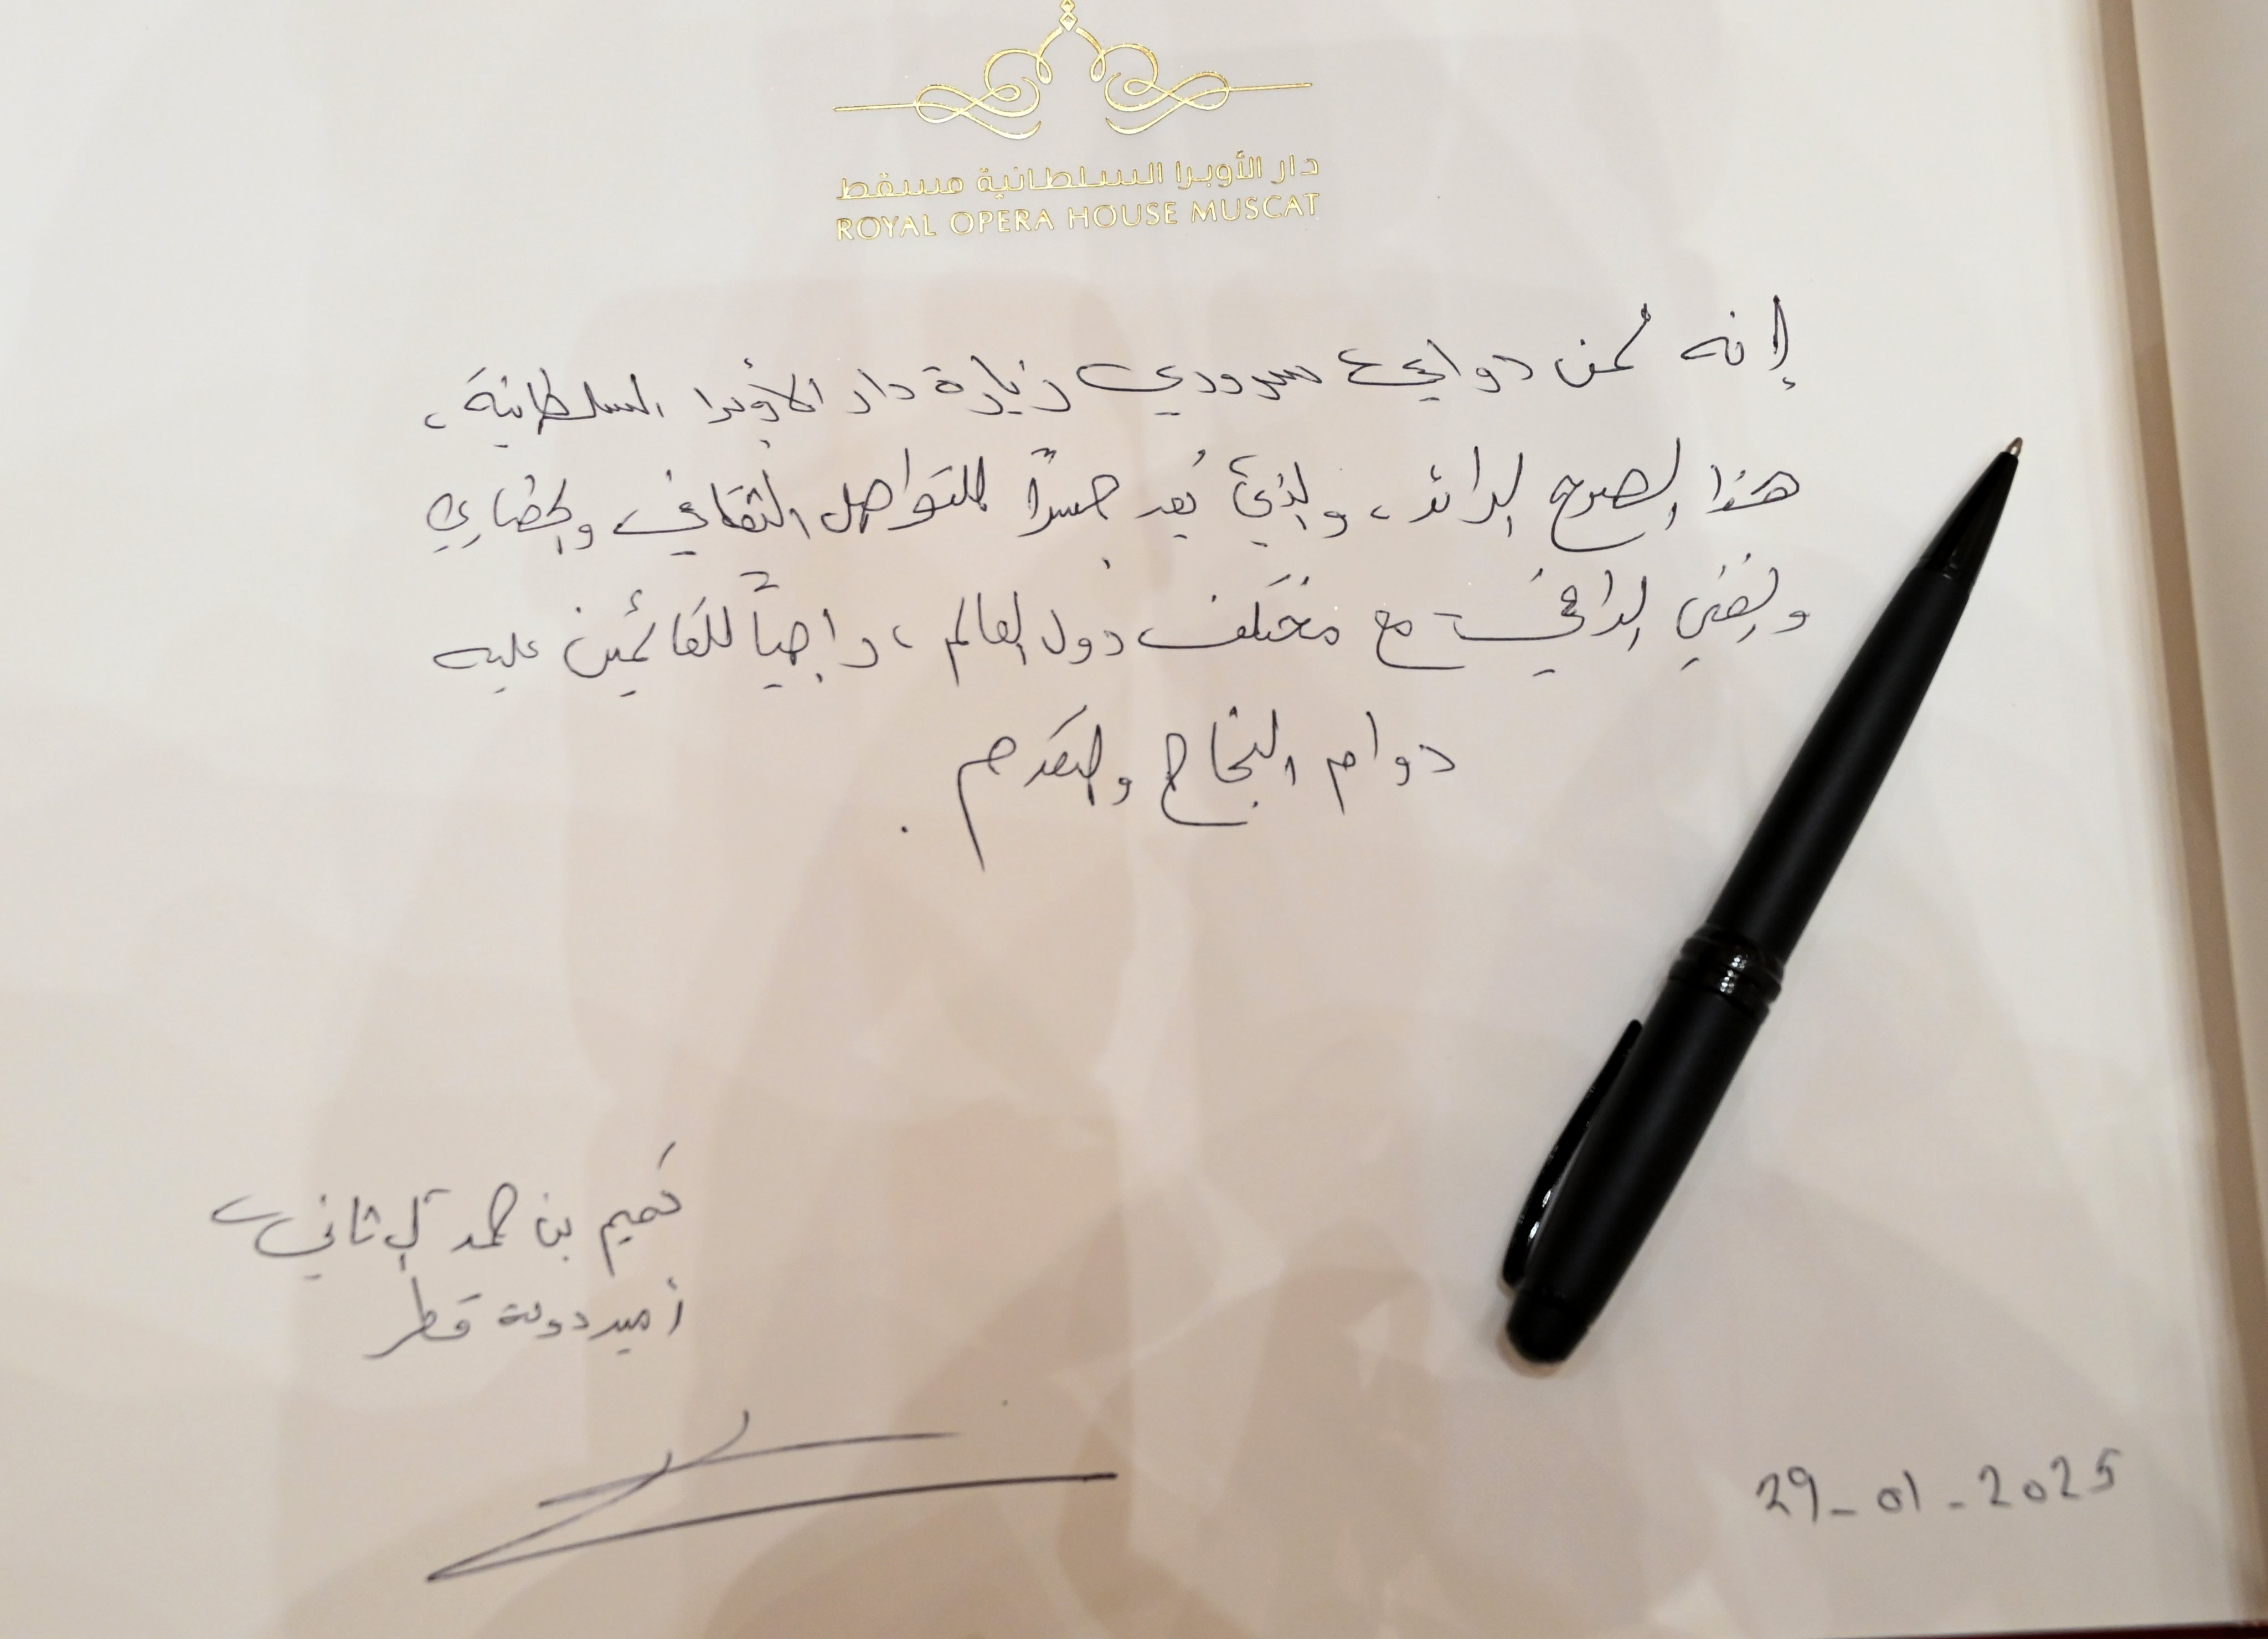 دار الأوبرا السلطانية مسقط
ROYAL OPERA HOUSE MUSCAT
إنه لمن دواعي سروري زيارة دار الأوبرا السلطانية،
هذا الصرح الرائد، والذي يُعد جسراً للتواصل الثقافي والحضاري
والفني الراقي مع مختلف دول العالم، راجياً للقائمين عليه
دوام النجاح والتقدم.
تميم بن حمد آل ثاني
أمير دولة قطر
29-01-2025